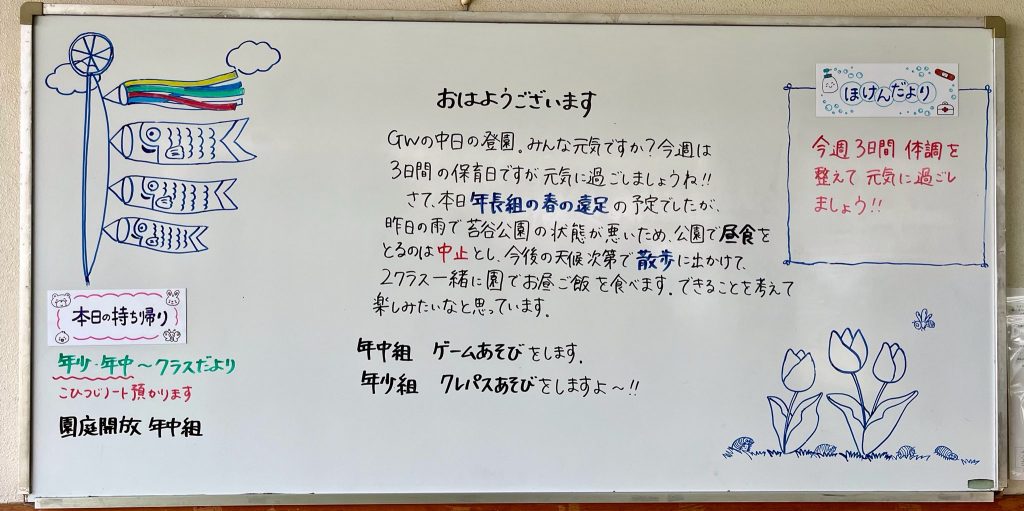 おはようございます
GWの中日の登園。みんな元気ですか?今週は
3日間の保育日ですが元気に過ごしましょうね!!
さて、本日年長組の春の遠足の予定でしたが、
昨日の雨で苔谷公園の状態が悪いため、公園で昼食を
とるのは中止とし、今後の天候次第で散歩に出かけて、
2クラス一緒に園でお昼ご飯を食べます。できることを考えて
楽しみたいなと思っています。
年中組 ゲームあそびをします。
年少組 クレパスあそびをしますよ～!!
ほけんだより
今週3日間 体調を
整えて 元気に過ごし
ましょう!!
本日の持ち帰り
年少・年中～クラスだより
こひつじノート預かります
園庭開放 年中組